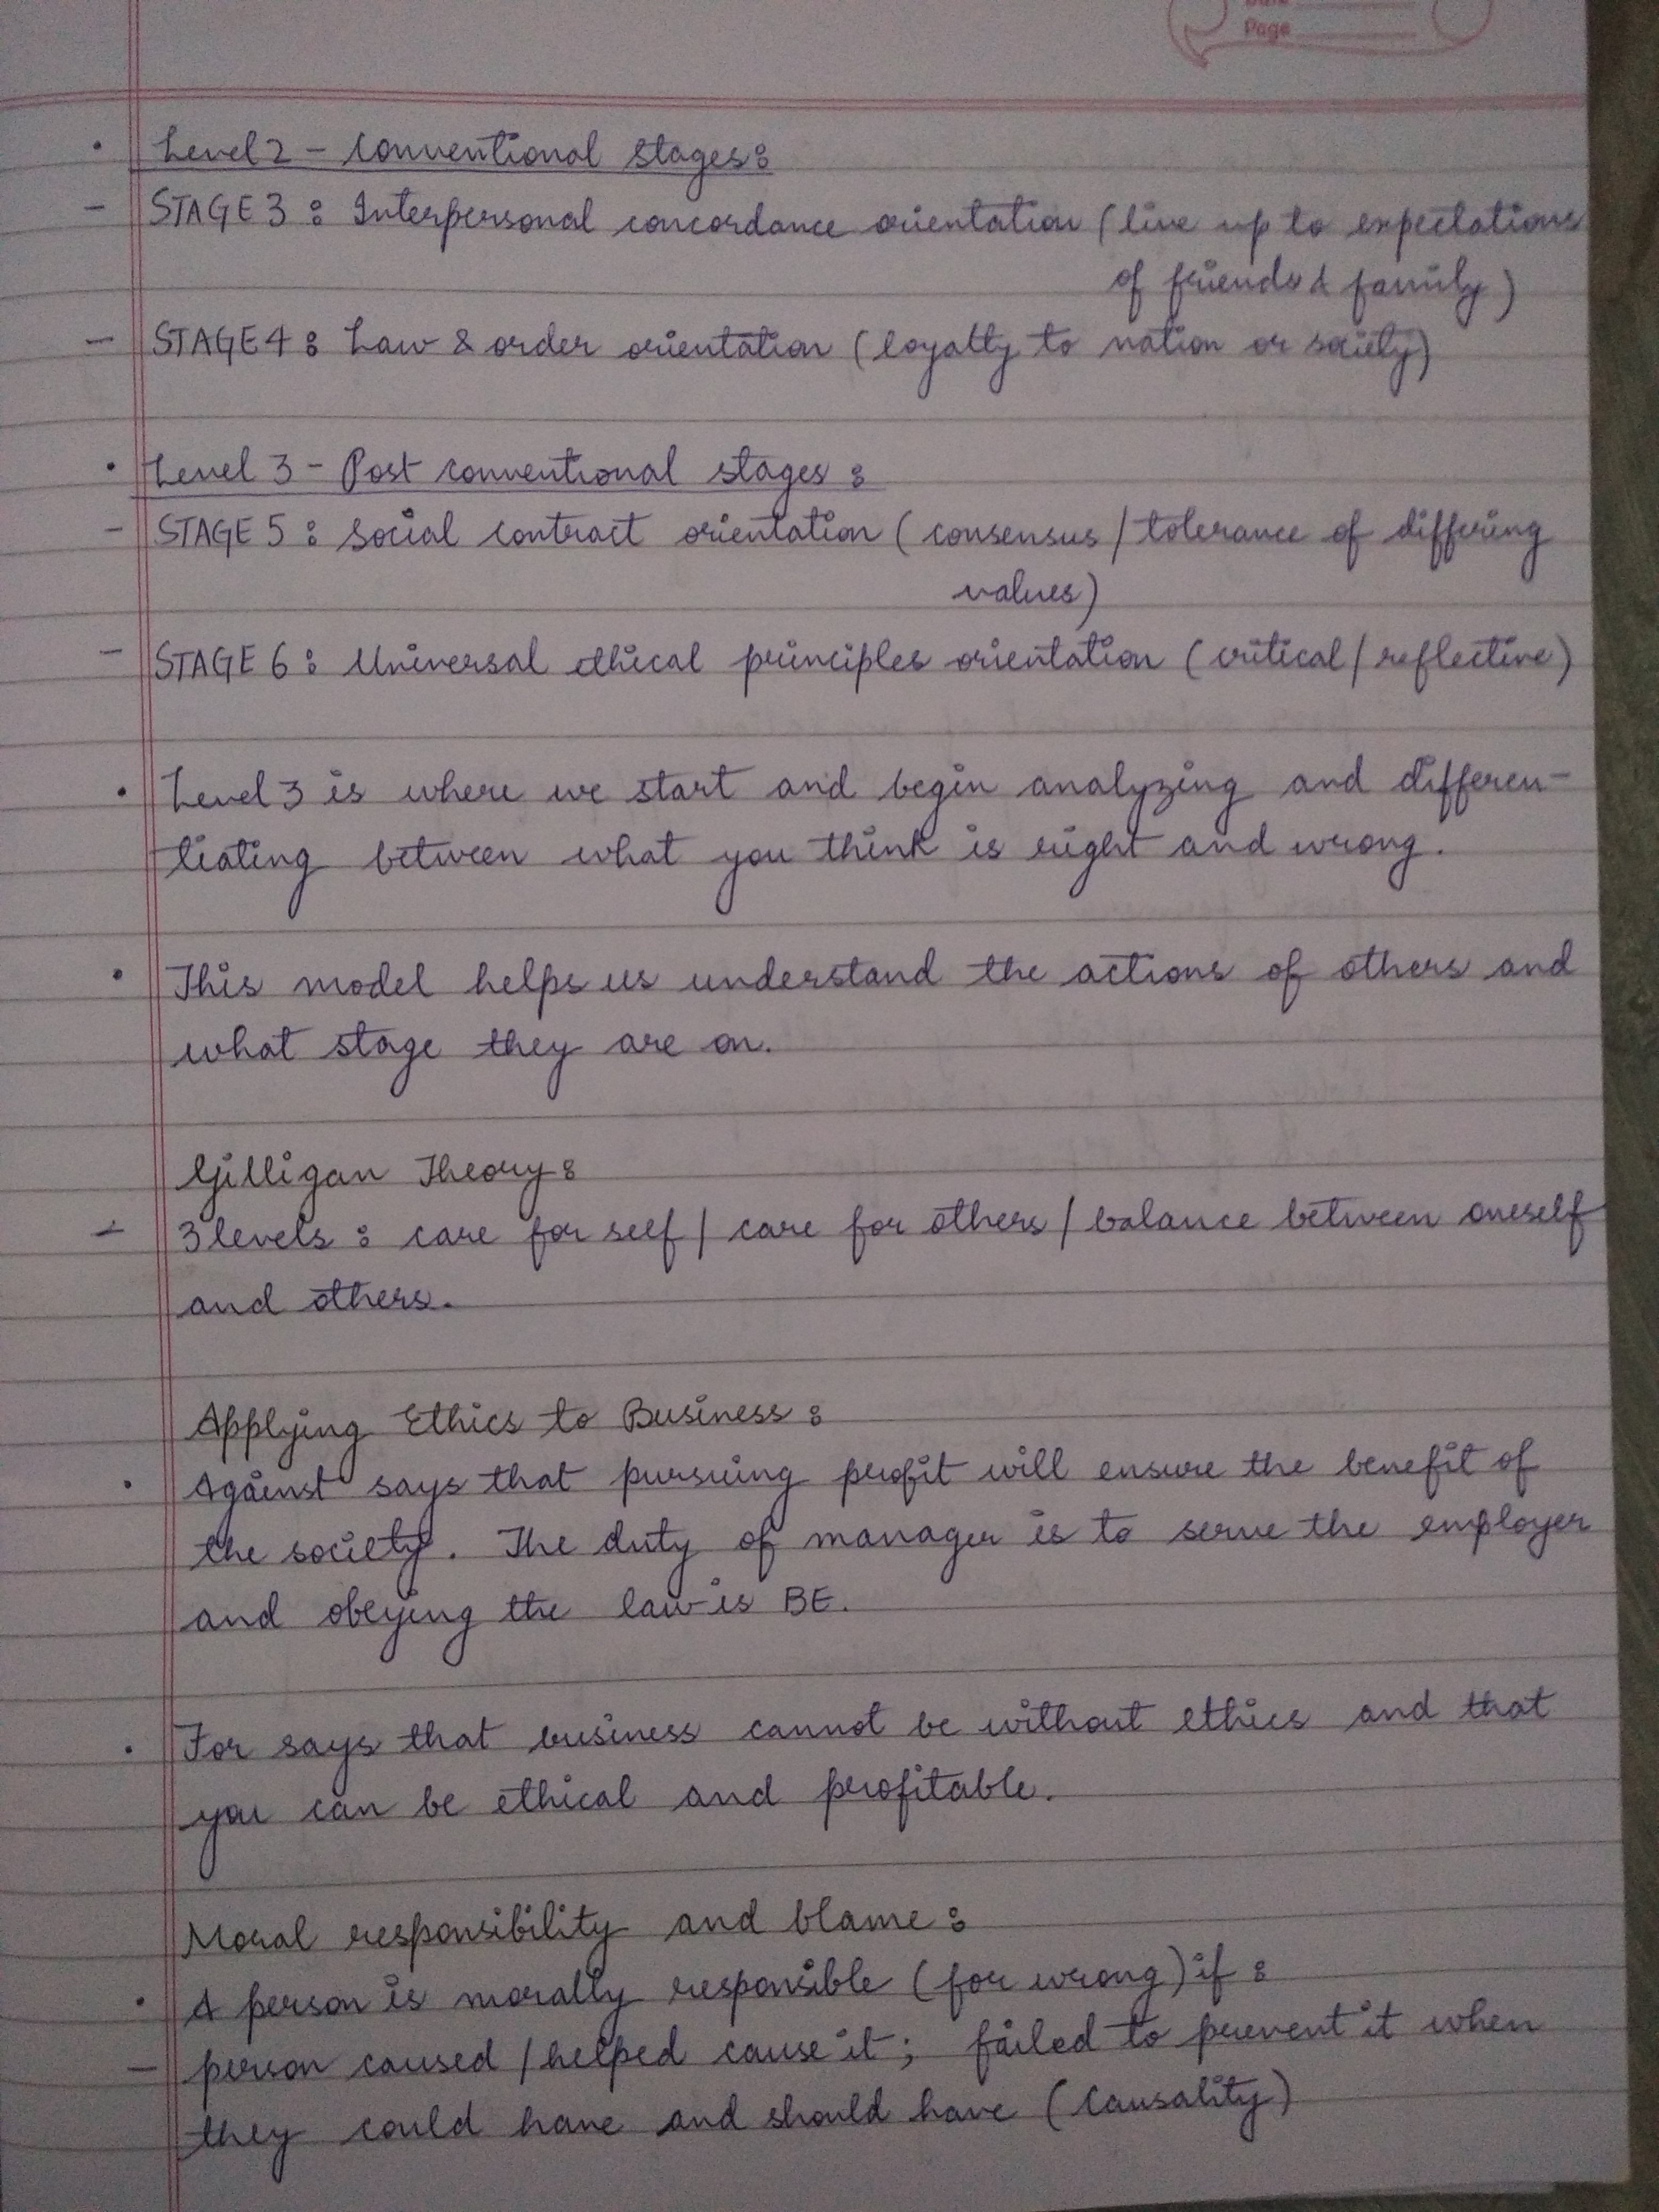 Page
• Level 2 - Conventional stages:
- STAGE 3: Interpersonal concordance orientation (live up to expectations
of friends & family)
- STAGE 4: Law & order orientation (loyalty to nation or society)
• Level 3 - Post conventional stages:
- STAGE 5: Social contract orientation (consensus / tolerance of differing
values)
- STAGE 6: Universal ethical principles orientation (critical / reflective)
• Level 3 is where we start and begin analyzing and differen-
tiating between what you think is right and wrong.
• This model helps us understand the actions of others and
what stage they are on.
Gilligan Theory:
- 3 levels: care for self / care for others / balance between oneself
and others.
Applying Ethics to Business:
• Against says that pursuing profit will ensure the benefit of
the society. The duty of manager is to serve the employer
and obeying the law is BE.
• For says that business cannot be without ethics and that
you can be ethical and profitable.
Moral responsibility and blame:
• A person is morally responsible (for wrong) if:
- person caused / helped cause it; failed to prevent it when
they could have and should have (causality)